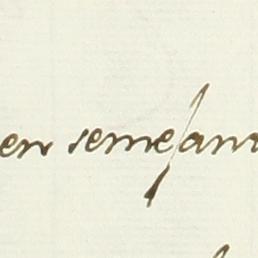 en semejan